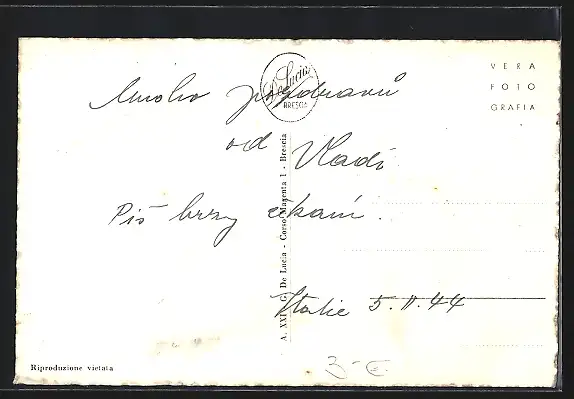 De Lucia
BRESCIA
VERA
FOTO
GRAFIA
Mnoho pozdravů
od Vladi
Piš brzy čekám.
Italie 5.II.44
A. XXII G. De Lucia - Corso Magenta 1 - Brescia
Riproduzione vietata
3-€